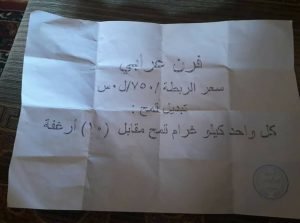 فرن عرابي
سعر الربطة /٧٥٠/ل٠س
تبديل قمح :
كل واحد كيلو غرام قمح مقابل (١٠) أرغفة